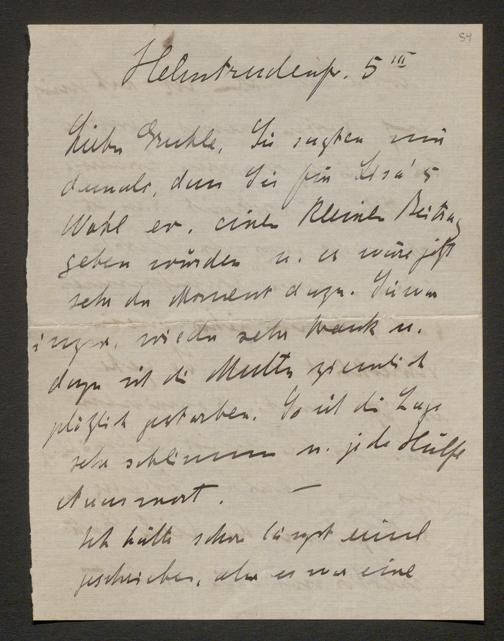 54
Helmtrudenstr. 5 III
Lieber Gruhle, Sie sagten mir
damals, dass Sie für
Wohl ev. einen kleinen Beitrag
geben würden u. es wäre jetzt
sehr der Moment dazu. Sie war
inzw. wieder sehr krank u.
dazu ist die Mutter ziemlich
plötzlich gestorben. So ist die Lage
sehr schlimm u. jede Hülfe
Ich hätte schon längst einmal
geschrieben, aber es war eine